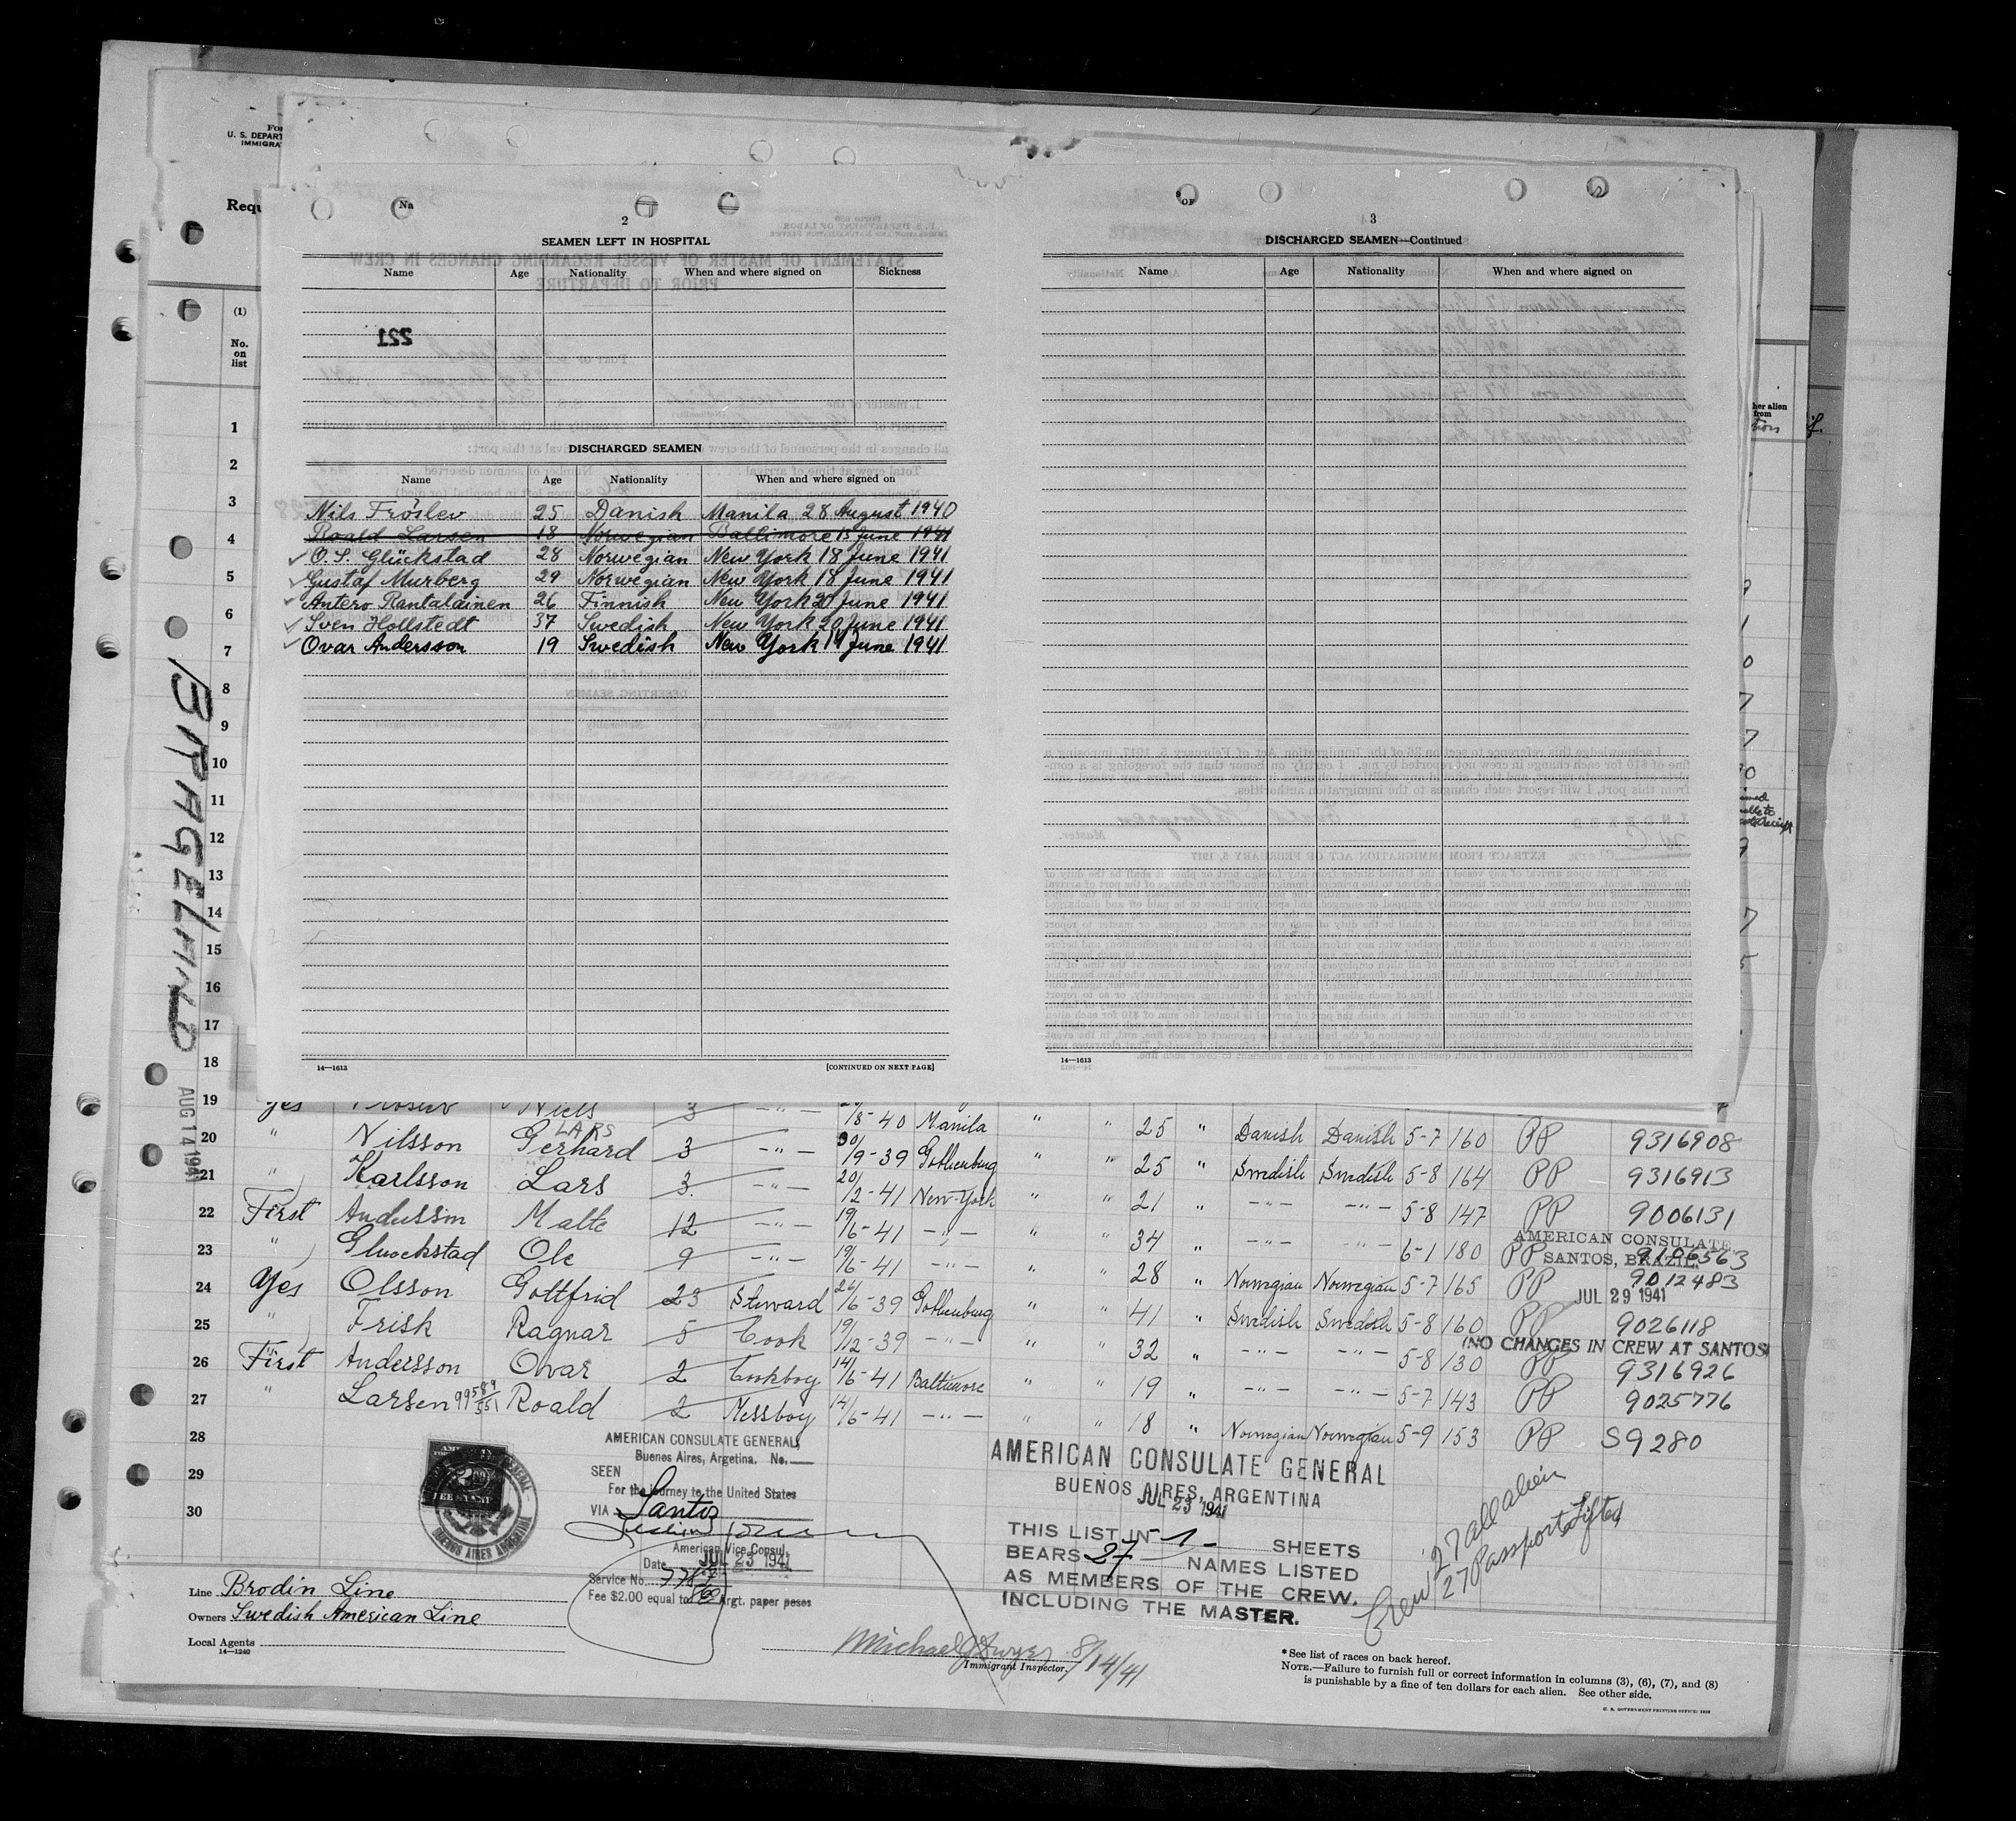 U. S. DEPART
IMMIGRA
Requ
2
SEAMEN LEFT IN HOSPITAL
Name Age Nationality When and where signed on Sickness
221
DISCHARGED SEAMEN
Name Age Nationality When and where signed on
Nils Fröslev 25 Danish Manila 28 August 1940
Roald Larsen 18 Norwegian Baltimore 13 June 1941
O. S. Glückstad 28 Norwegian New York 18 June 1941
Gustaf Murberg 29 Norwegian New York 18 June 1941
Antero Rantalainen 26 Finnish New York 20 June 1941
Sven Hollstedt 37 Swedish New York 20 June 1941
Ovar Andersson 19 Swedish New York 14 June 1941
14—1613 [CONTINUED ON NEXT PAGE]
3
DISCHARGED SEAMEN—Continued
Name Age Nationality When and where signed on
14—1613
(1)
No.
on
list
1
2
3
4
5
6
7
8
9
10
11
12
13
14
15
16
17
18
AUG 14 1941
19 Yes Niels 3 — " — /8-40 Manila " " 25 " Danish Danish 5-7 160 PP 9316908
LARS
20 " Nilsson Gerhard 3 — " — 30/9-39 Gothenburg " " 25 " Swedish Swedish 5-8 164 PP 9316913
21 " Karlsson Lars 3 — " — 20/2-41 New-York " " 21 " — " — — " — 5-8 147 PP 9006131
22 First Malte 12 — " — 19/6-41 — " — " " 34 " — " — — " — 6-1 180 PP 9106563
23 " Gluckstad Ole 9 — " — 19/6-41 — " — " " 28 " Norwegian Norwegian 5-7 165 PP 9012483
24 Yes Olsson Gottfrid 23 Steward 26/6-39 Gothenburg " " 41 " Swedish Swedish 5-8 160 PP 9026118
25 " Frisk Ragnar 5 Cook 19/12-39 — " — " " 32 " — " — — " — 5-8 130 PP 9316926
26 First Andersson Ovar 2 Cookboy 14/6-41 Baltimore " " 19 " — " — — " — 5-7 143 PP 9025776
27 " Larsen Roald 2 Messboy 14/6-41 — " — " " 18 " Norwegian Norwegian 5-9 153 PP S9280
28
29
30
AMERICAN CONSULATE
SANTOS, BRAZIL
JUL 29 1941
(NO CHANGES IN CREW AT SANTOS)
AMERICAN CONSULATE GENERAL
Buenos Aires, Argetina. No.
SEEN
For the journey to the United States
VIA Santos
American Vice Consul.
Date JUL 23 1941
Service No.
Fee $2.00 equal to Argt. paper pesos
AMERICAN CONSULATE GENERAL
BUENOS AIRES, ARGENTINA
JUL 23 1941
THIS LIST IN -1- SHEETS
BEARS 27 NAMES LISTED
AS MEMBERS OF THE CREW.
INCLUDING THE MASTER.
Crew 27 all alien
27 Passports Lifted
Line Brodin Line
Owners Swedish American Line
Local Agents
14—1240
Michael J Dwyer 8/14/41
Immigrant Inspector.
* See list of races on back hereof.
NOTE.—Failure to furnish full or correct information in columns (3), (6), (7), and (8)
is punishable by a fine of ten dollars for each alien. See other side.